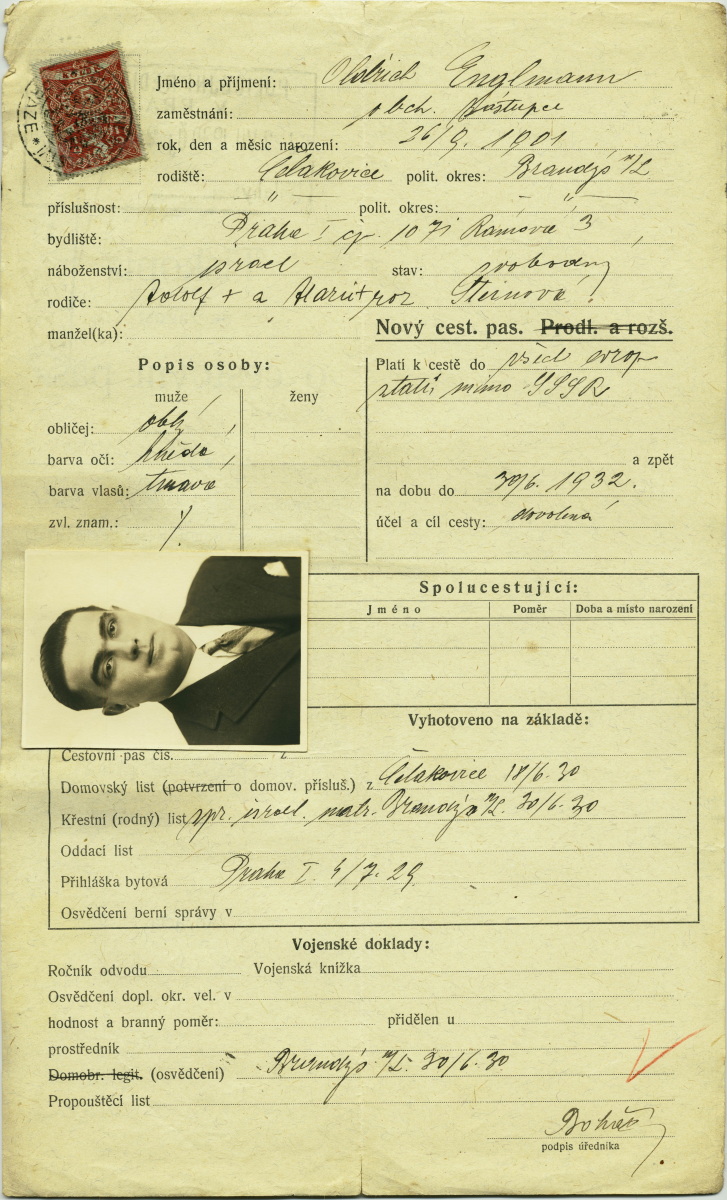 Jméno a příjmení: Oldřich Englmann
zaměstnání: obch. zástupce
rok, den a měsíc narození: 26/9. 1901
rodiště: Čelakovice polit. okres: Brandýs n/L
příslušnost: " polit. okres: "
bydliště: Praha I čp. 1071 Rámová 3
náboženství: israel stav: svobodný
rodiče: Adolf + a Marie + roz. Šteinová
manžel(ka):
Nový cest. pas. Prodl. a rozš.
Popis osoby:
muže ženy
obličej: oblý
barva očí: hnědá
barva vlasů: tmavá
zvl. znam.: /.
Platí k cestě do všech evrop
států mimo SSSR
a zpět
na dobu do 30/6. 1932.
účel a cíl cesty: dovolená
Spolucestující:
Jméno Poměr Doba a místo narození
Vyhotoveno na základě:
Cestovní pas čís. z
Domovský list (potvrzení o domov. přísluš.) z Čelakovice 18/6. 30
Křestní (rodný) list zpr. israel. matr. Brandýs n/L. 30/6. 30
Oddací list
Přihláška bytová Praha I. 4/7. 29
Osvědčení berní správy v
Vojenské doklady:
Ročník odvodu Vojenská knížka
Osvědčení dopl. okr. vel. v
hodnost a branný poměr: přidělen u
prostředník
Domobr. legit. (osvědčení) Brandýs n/L. 30/6. 30
Propouštěcí list
podpis úředníka